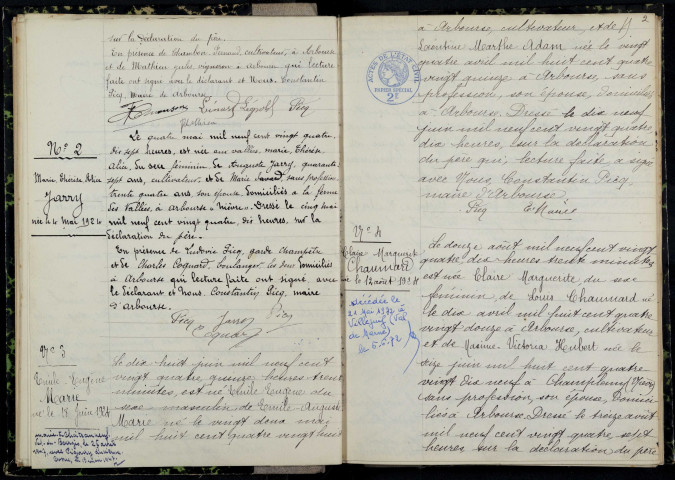 sur la déclaration du père.
En présence de Chambon Fernand, cultivateur, à Arbourse
et de Mathieu Jules, vigneron à Arbourse qui lecture
faite ont signé avec le déclarant et Nous, Constantin
Picq, Maire d'Arbourse.
Picq
Mathieu
N° 2
Marie Thérèse Alice
Jarry
née le 4 mai 1924
Le quatre mai mil neuf cent vingt quatre
dix sept heures, est née aux vallées, marie, thérèse
alice, du sexe féminin de Auguste Jarry, quarante
sept ans, cultivateur et de Marie Savard, sans profession
trente quatre ans, son épouse domiciliés à la ferme
des Vallées, à arbourse (nièvre). Dressé le cinq mai
mil neuf cent vingt quatre, dix heures, sur la
déclaration du père.
En présence de Ludovic Picq, garde champêtre
et de Charles Coquard, boulanger, les deux domiciliés
à Arbourse qui lecture faite ont signé, avec
le déclarant et nous, Constantin Picq, maire
d'arbourse.
Picq Jarry Picq
Coquard
N° 3
Emile Eugène
Marie
né le 18 Juin 1924
Le dix huit juin mil neuf cent
vingt quatre quinze heures trente
minutes, est né Emile Eugène du
sexe masculin, de Emile August
Marie né le vingt deux mai
mil huit cent quatre vingt huit
2
à Arbourse, cultivateur, et de
Léontine Marthe Adam née le vingt
quatre avril mil huit cent quatre
vingt quinze à Arbourse, sans
profession, son épouse, domiciliés
à Arbourse. Dressé le dix neuf
juin mil neuf cent vingt quatre
dix heures, sur la déclaration
du père qui, lecture faite a signé
avec Nous Constantin Picq
maire d'Arbourse.
Picq E Marie
ACTES DE L'ÉTAT CIVIL
PAPIER SPÉCIAL
2F
N° 4
Claire Marguerite
Chaumard
née le 12 août 1924
décédée le
21 Mai 1972 à
Villejuif (Val
de Marne)
le 6.6.72
Le douze août mil neuf cent vingt
quatre dix heures trente minutes
est née Claire Marguerite du sexe
féminin de Louis Chaumard né
le dix avril mil huit cent quatre
vingt douze à Arbourse, cultivateur
et de Maxime Victoria Heubert née le
onze juin mil huit cent quatre
vingt dix neuf à Champlemy (Nièvre)
sans profession, son épouse, domici-
liés à Arbourse. Dressé le treize août
mil neuf cent vingt quatre, sept
heures sur la déclaration du père